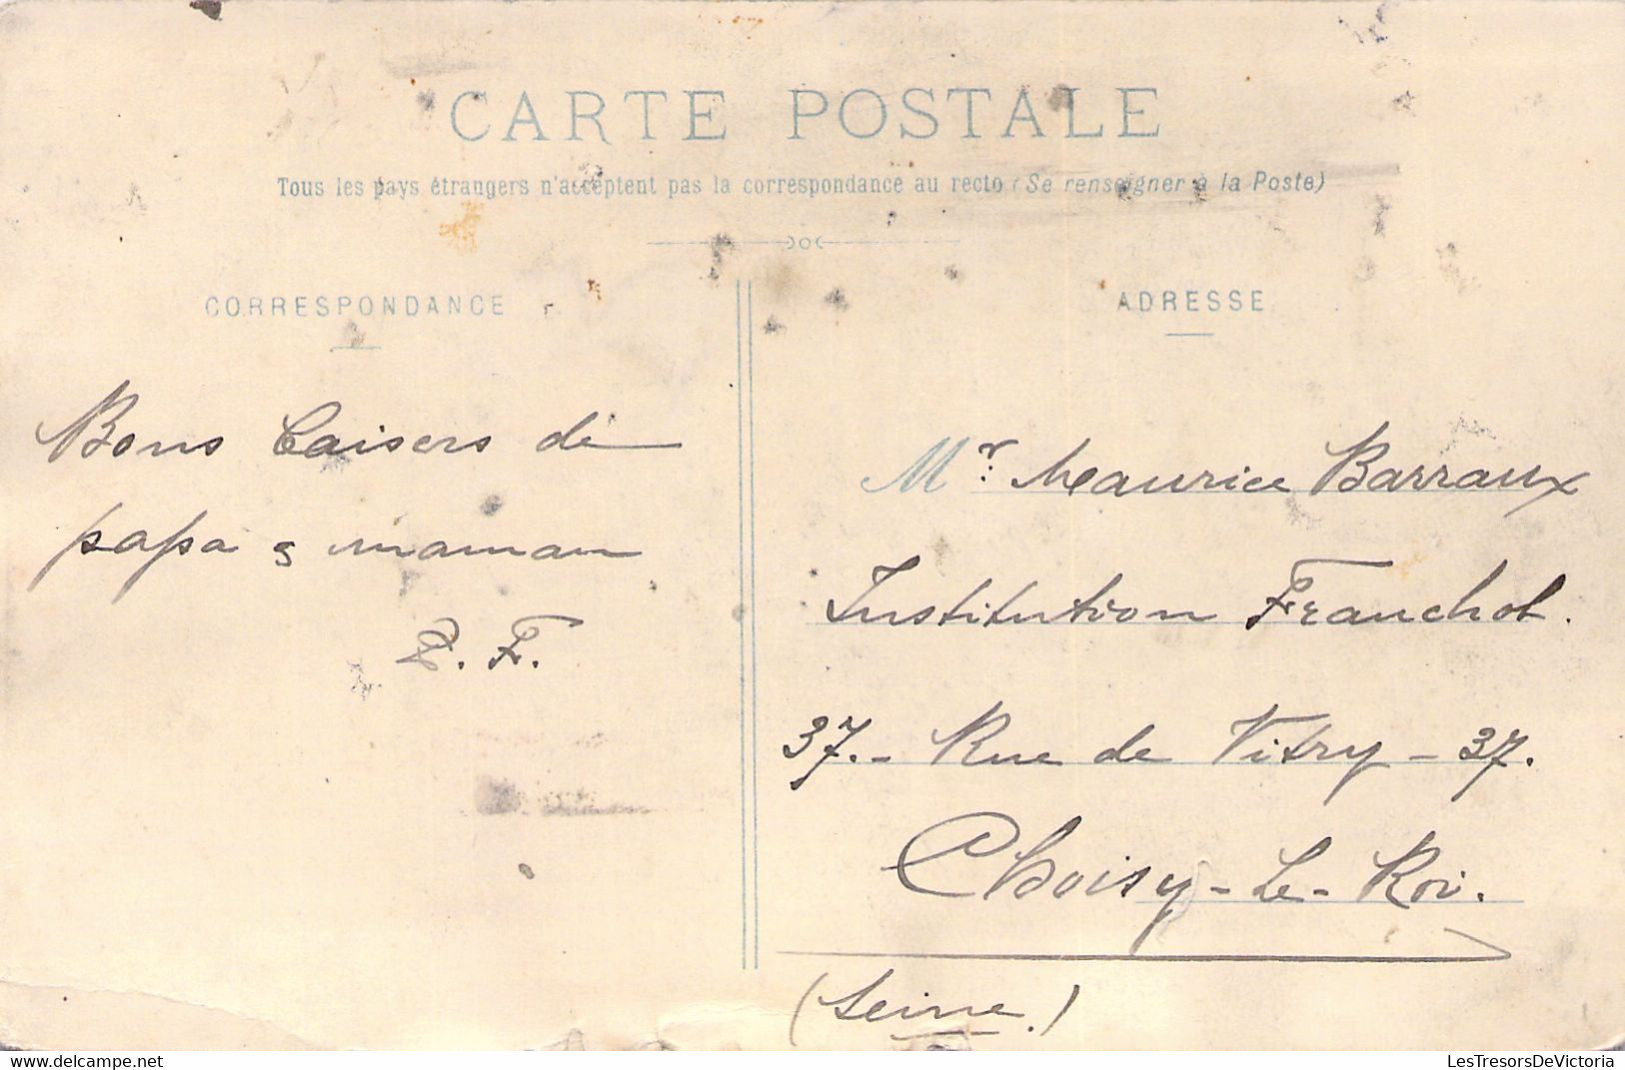 CARTE POSTALE
Tous les pays étrangers n'acceptent pas la correspondance au recto (Se renseigner à la Poste)
CORRESPONDANCE
Bons baisers de
papa & maman
F.
ADRESSE
Mr. Maurice Barraux
Institution Franchot.
37.- Rue de Vitry - 37.
Choisy-Le-Roi.
(Seine.)
delcampe.net
LesTresorsDeVictoria